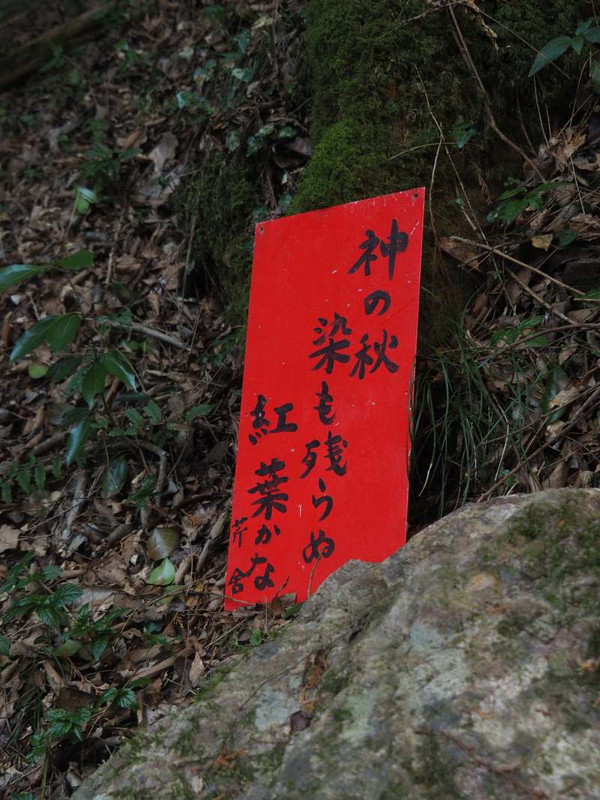 神の秋
染も残らぬ
紅葉かな
芹舎